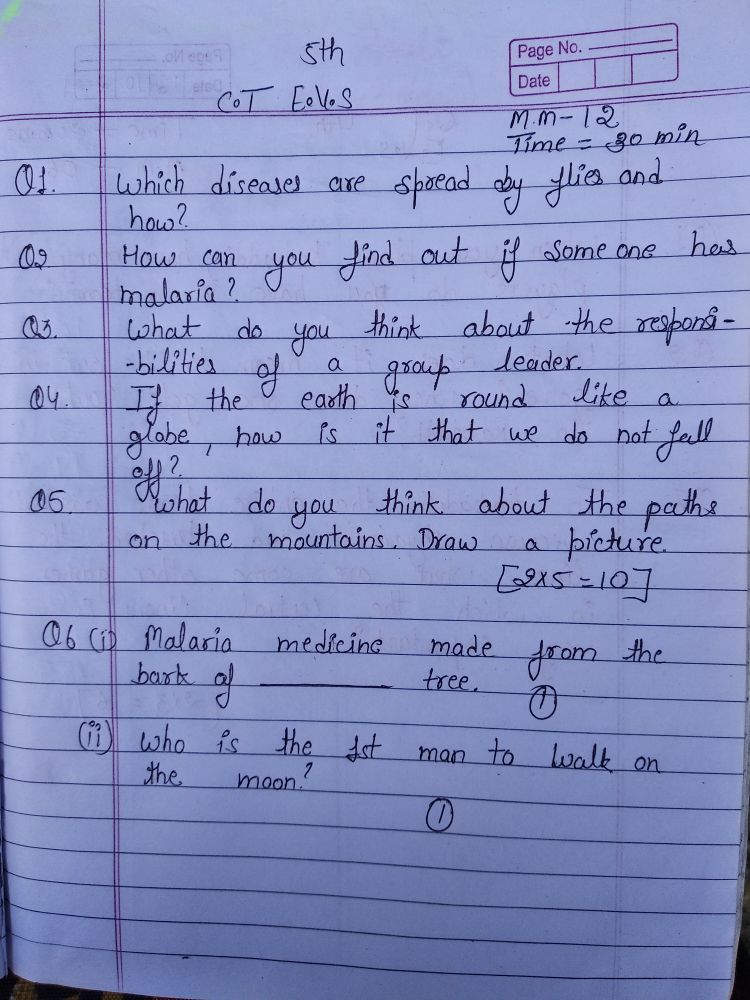 5th
Page No.
Date
COT E.V.S
M.M-12
Time = 30 min
Q1. Which diseases are spread by flies and
how?
Q2 How can you find out if some one has
malaria?
Q3. What do you think about the responsi-
-bilities of a group leader.
Q4. If the earth is round like a
globe, how is it that we do not fall
off?
Q5. What do you think about the paths
on the mountains. Draw a picture.
[2x5=10]
Q6 (i) Malaria medicine made from the
bark of ________ tree. 1
(ii) Who is the 1st man to walk on
the moon?
1